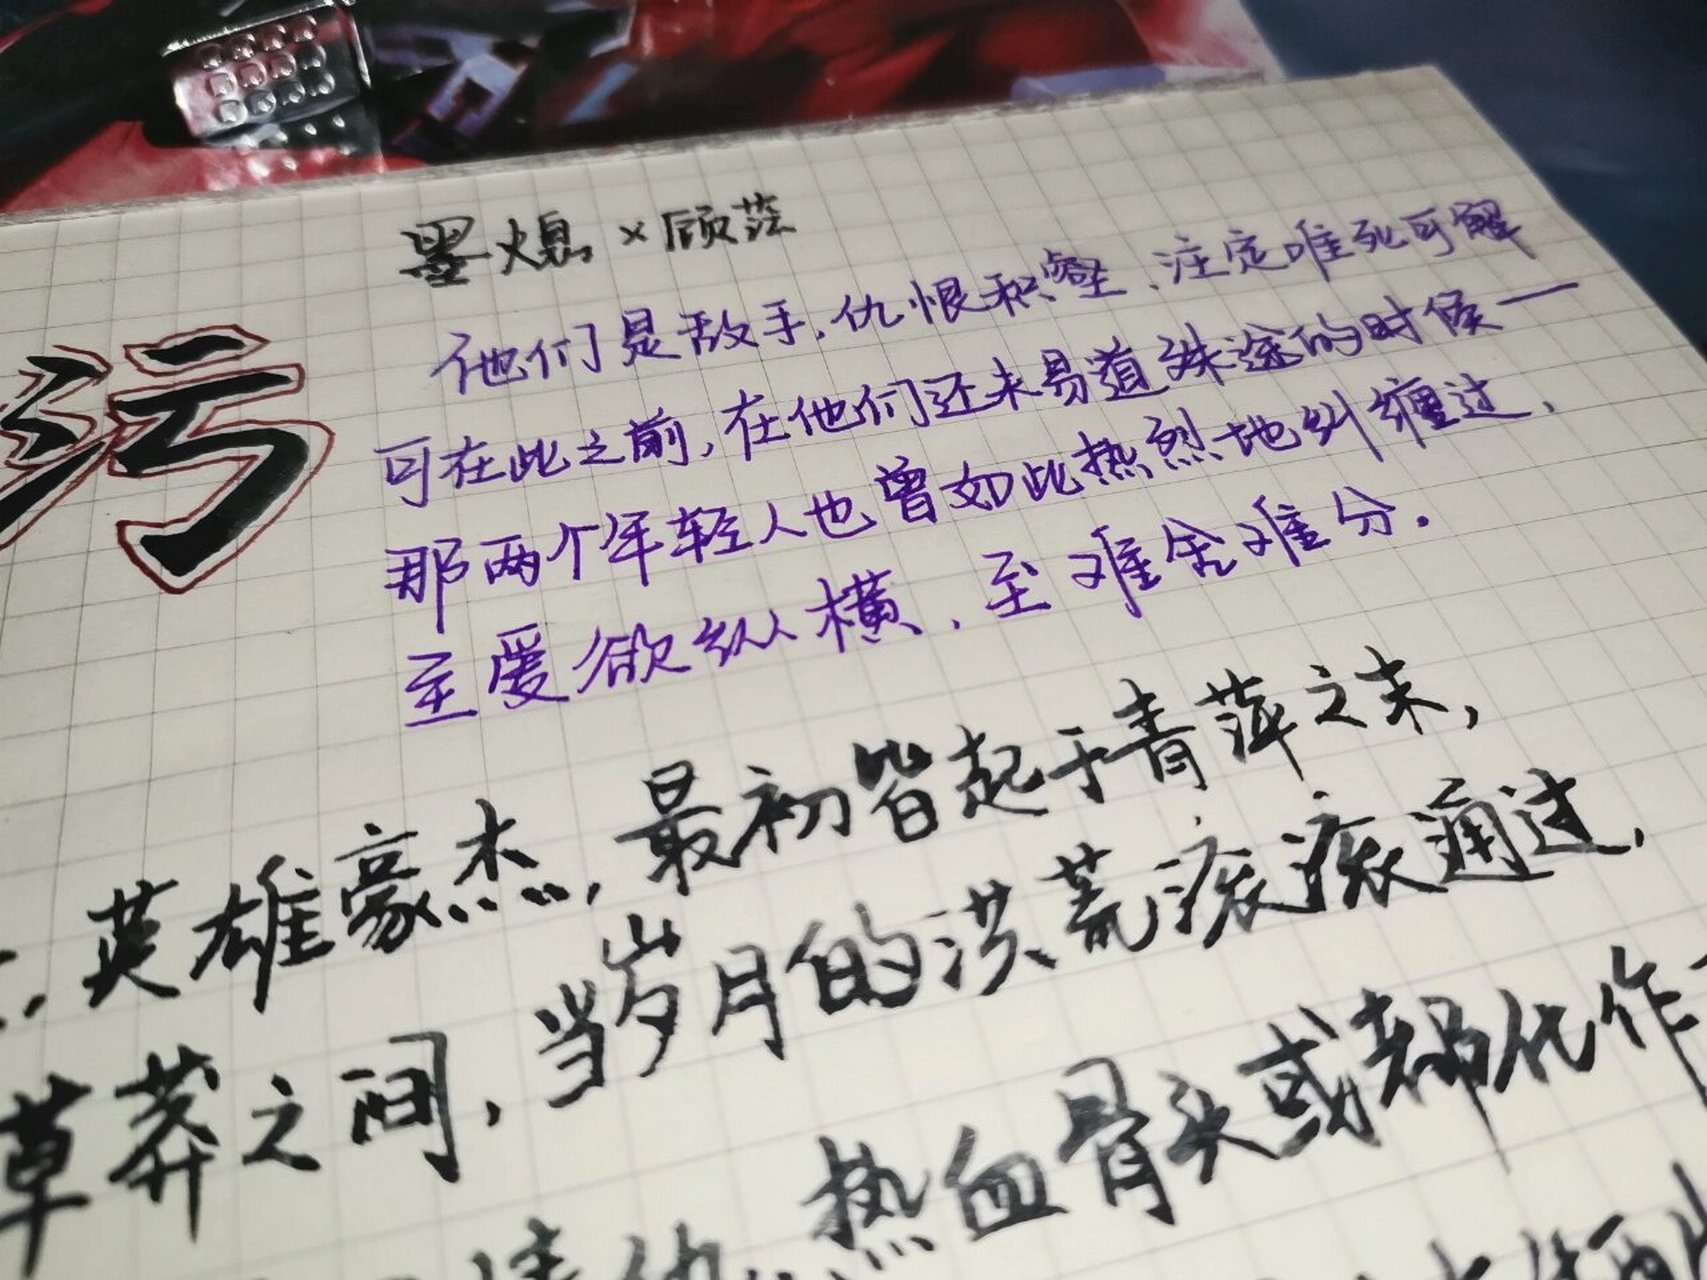 墨熄×顾茫
污
他们是敌手，仇恨积壑，注定唯死可解
可在此之前，在他们还未易道殊途的时候一
那两个年轻人也曾如此热烈地纠缠过，
至爱欲纵横，至难舍难分．
英雄豪杰，最初皆起于青萍之末，
草莽之间，当岁月的洪荒滚滚涌过，
热血骨头或都化作